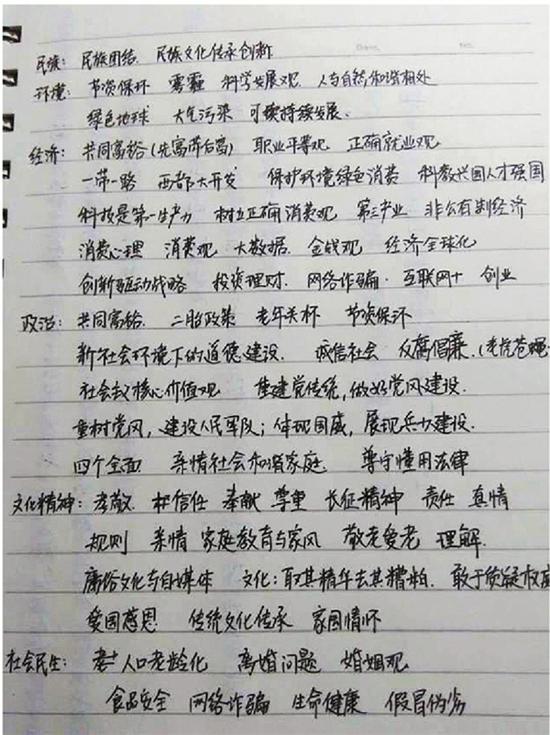 民族: 民族团结、民族文化传承创新
环境: 节资保环 雾霾 科学发展观 人与自然和谐相处
绿色地球 大气污染 可续持续发展.
经济: 共同富裕(先富带后富) 职业平等观 正确就业观
一带一路 西部大开发 保护环境绿色消费 科教兴国人才强国
科技是第一生产力 树立正确消费观 第三产业 非公有制经济
消费心理 消费观 大数据 金钱观 经济全球化
创新驱动战略 投资理财. 网络诈骗. 互联网+ 创业
政治: 共同富裕. 二胎政策 老年关怀 节资保环
新社会环境下的道德建设. 诚信社会 反腐倡廉.(老虎苍蝇
社会主义核心价值观 重建党传统,做好党风建设.
重树党风,建设人民军队;体现国威,展现兵力建设.
四个全面 亲情社会和谐家庭 尊守懂用法律
文化精神: 孝敬. 信任 奉献 尊重 长征精神 责任 真情
规则 亲情 家庭教育与家风 敬老爱老 理解.
庸俗文化与自媒体 文化:取其精华去其糟粕. 敢于质疑权威
爱国感恩 传统文化传承 家国情怀
社会民生: 人口老龄化 离婚问题 婚姻观
食品安全 网络诈骗 生命健康 假冒伪劣